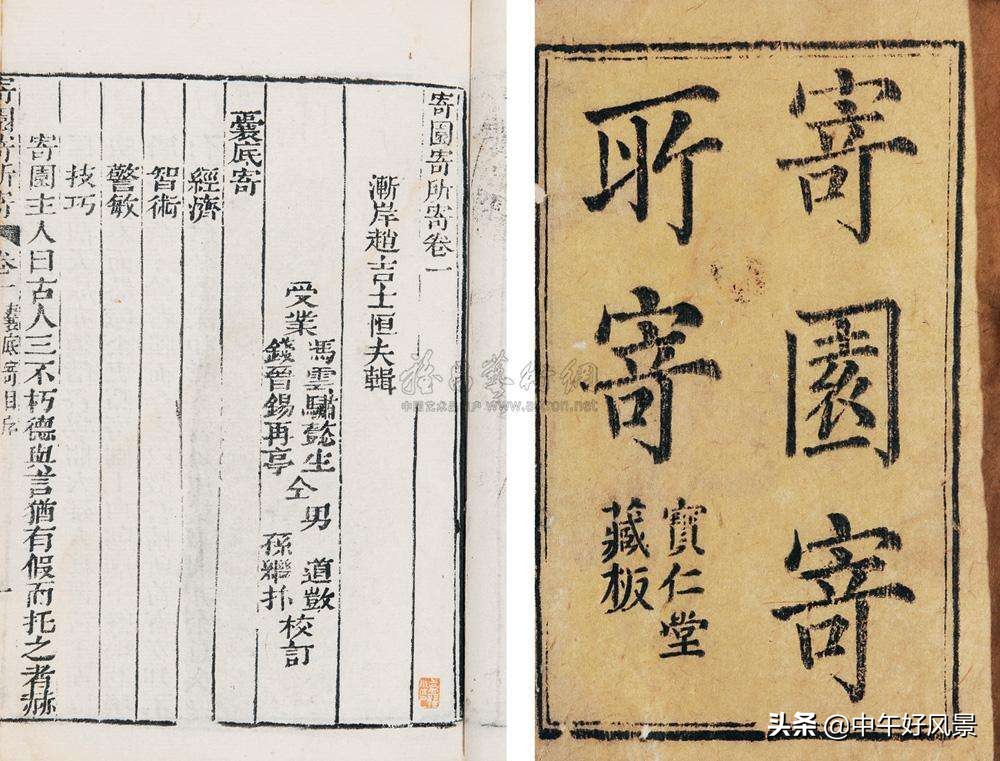 寄園寄
所寄
寶仁堂
藏板
寄園寄所寄卷一
漸岸趙吉士恒夫輯
受業
馮雲驌懿生
錢晉錫再亭
仝
男
道敳
孫繼抃
校訂
囊底寄
經濟
智術
警敏
技巧
寄園主人曰古人三不朽德與言猶有假而托之者赫
寄園寄所寄
卷一
囊底寄
www.artron.net
头条 @中午好风景